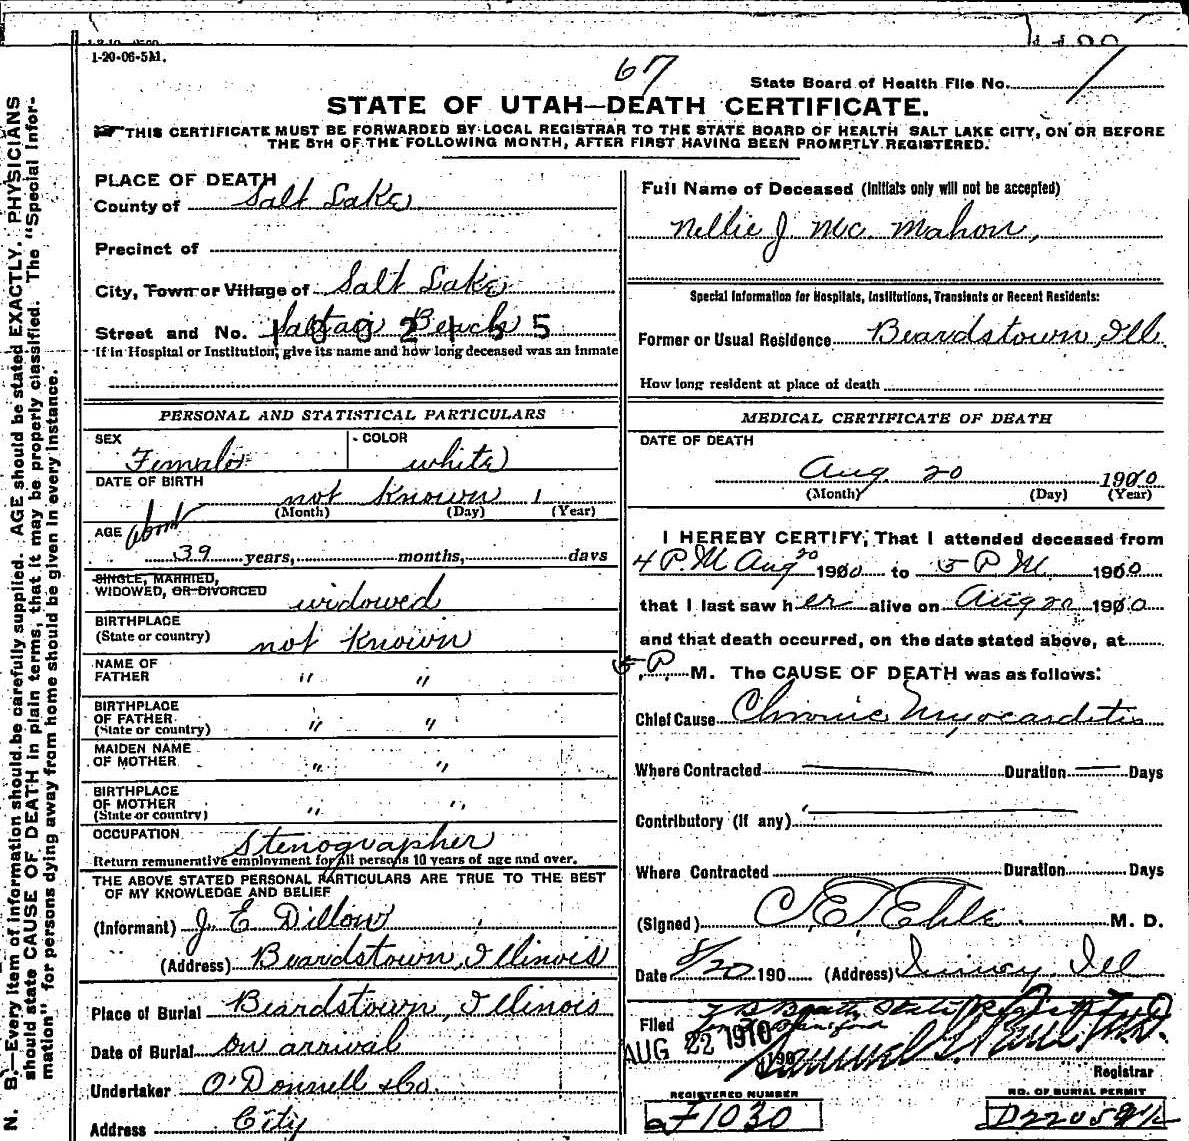 1-20-06-5M.
67
State Board of Health File No.
STATE OF UTAH—DEATH CERTIFICATE.
THIS CERTIFICATE MUST BE FORWARDED BY LOCAL REGISTRAR TO THE STATE BOARD OF HEALTH SALT LAKE CITY, ON OR BEFORE
THE 5TH OF THE FOLLOWING MONTH, AFTER FIRST HAVING BEEN PROMPTLY REGISTERED.
N. B.—Every item of information should be carefully supplied. AGE should be stated EXACTLY. PHYSICIANS
should state CAUSE OF DEATH in plain terms, that it may be properly classified. The "Special Infor-
mation" for persons dying away from home should be given in every instance.
PLACE OF DEATH
County of Salt Lake
Precinct of
City, Town or Village of Salt Lake
Street and No. Saltair Beach
1002155
If in Hospital or Institution, give its name and how long deceased was an inmate
PERSONAL AND STATISTICAL PARTICULARS
SEX Female
COLOR white
DATE OF BIRTH not known 1
(Month) (Day) (Year)
AGE about
39 years, months, days
SINGLE, MARRIED,
WIDOWED, OR DIVORCED widowed
BIRTHPLACE
(State or country) not known
NAME OF
FATHER " "
BIRTHPLACE
OF FATHER
(State or country) " "
MAIDEN NAME
OF MOTHER " "
BIRTHPLACE
OF MOTHER
(State or country) " "
OCCUPATION Stenographer
Return remunerative employment for all persons 10 years of age and over.
THE ABOVE STATED PERSONAL PARTICULARS ARE TRUE TO THE BEST
OF MY KNOWLEDGE AND BELIEF
(Informant) J E Dillow
(Address) Beardstown, Illinois
Place of Burial Beardstown, Illinois
Date of Burial on arrival
Undertaker O'Donnell & Co.
Address City
Full Name of Deceased (Initials only will not be accepted)
Nellie J Mc. Mahon,
Special Information for Hospitals, Institutions, Transients or Recent Residents:
Former or Usual Residence Beardstown, Ill
How long resident at place of death
MEDICAL CERTIFICATE OF DEATH
DATE OF DEATH
Aug. 20 1910
(Month) (Day) (Year)
I HEREBY CERTIFY, That I attended deceased from
4 P.M Aug 20 1910 to 5 P M 1910
that I last saw her alive on Aug 20 1910
and that death occurred, on the date stated above, at
5 P. M. The CAUSE OF DEATH was as follows:
Chief Cause Chronic Myocarditis
Where Contracted Duration Days
Contributory (if any)
Where Contracted Duration Days
(Signed) C. E. Ehle M. D.
Date 8/20 190 (Address) Quincy, Ill
Filed
AUG 22 1910
190
Registrar
REGISTERED NUMBER
F1030
NO. OF BURIAL PERMIT